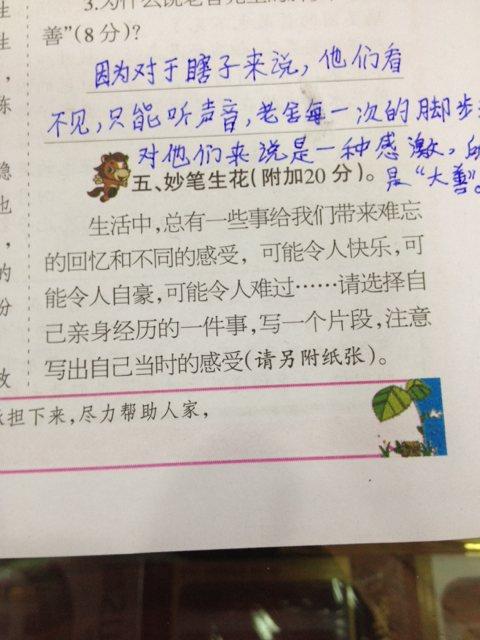 3.为什么说老舍先生
善”(8分)?
因为对于瞎子来说，他们看
不见，只能听声音，老舍每一次的脚步
对他们来说是一种感激，
是“大善”。
五、妙笔生花(附加20分)。
生活中,总有一些事给我们带来难忘
的回忆和不同的感受，可能令人快乐,可
能令人自豪,可能令人难过……请选择自
己亲身经历的一件事,写一个片段,注意
写出自己当时的感受(请另附纸张)。
担下来,尽力帮助人家,